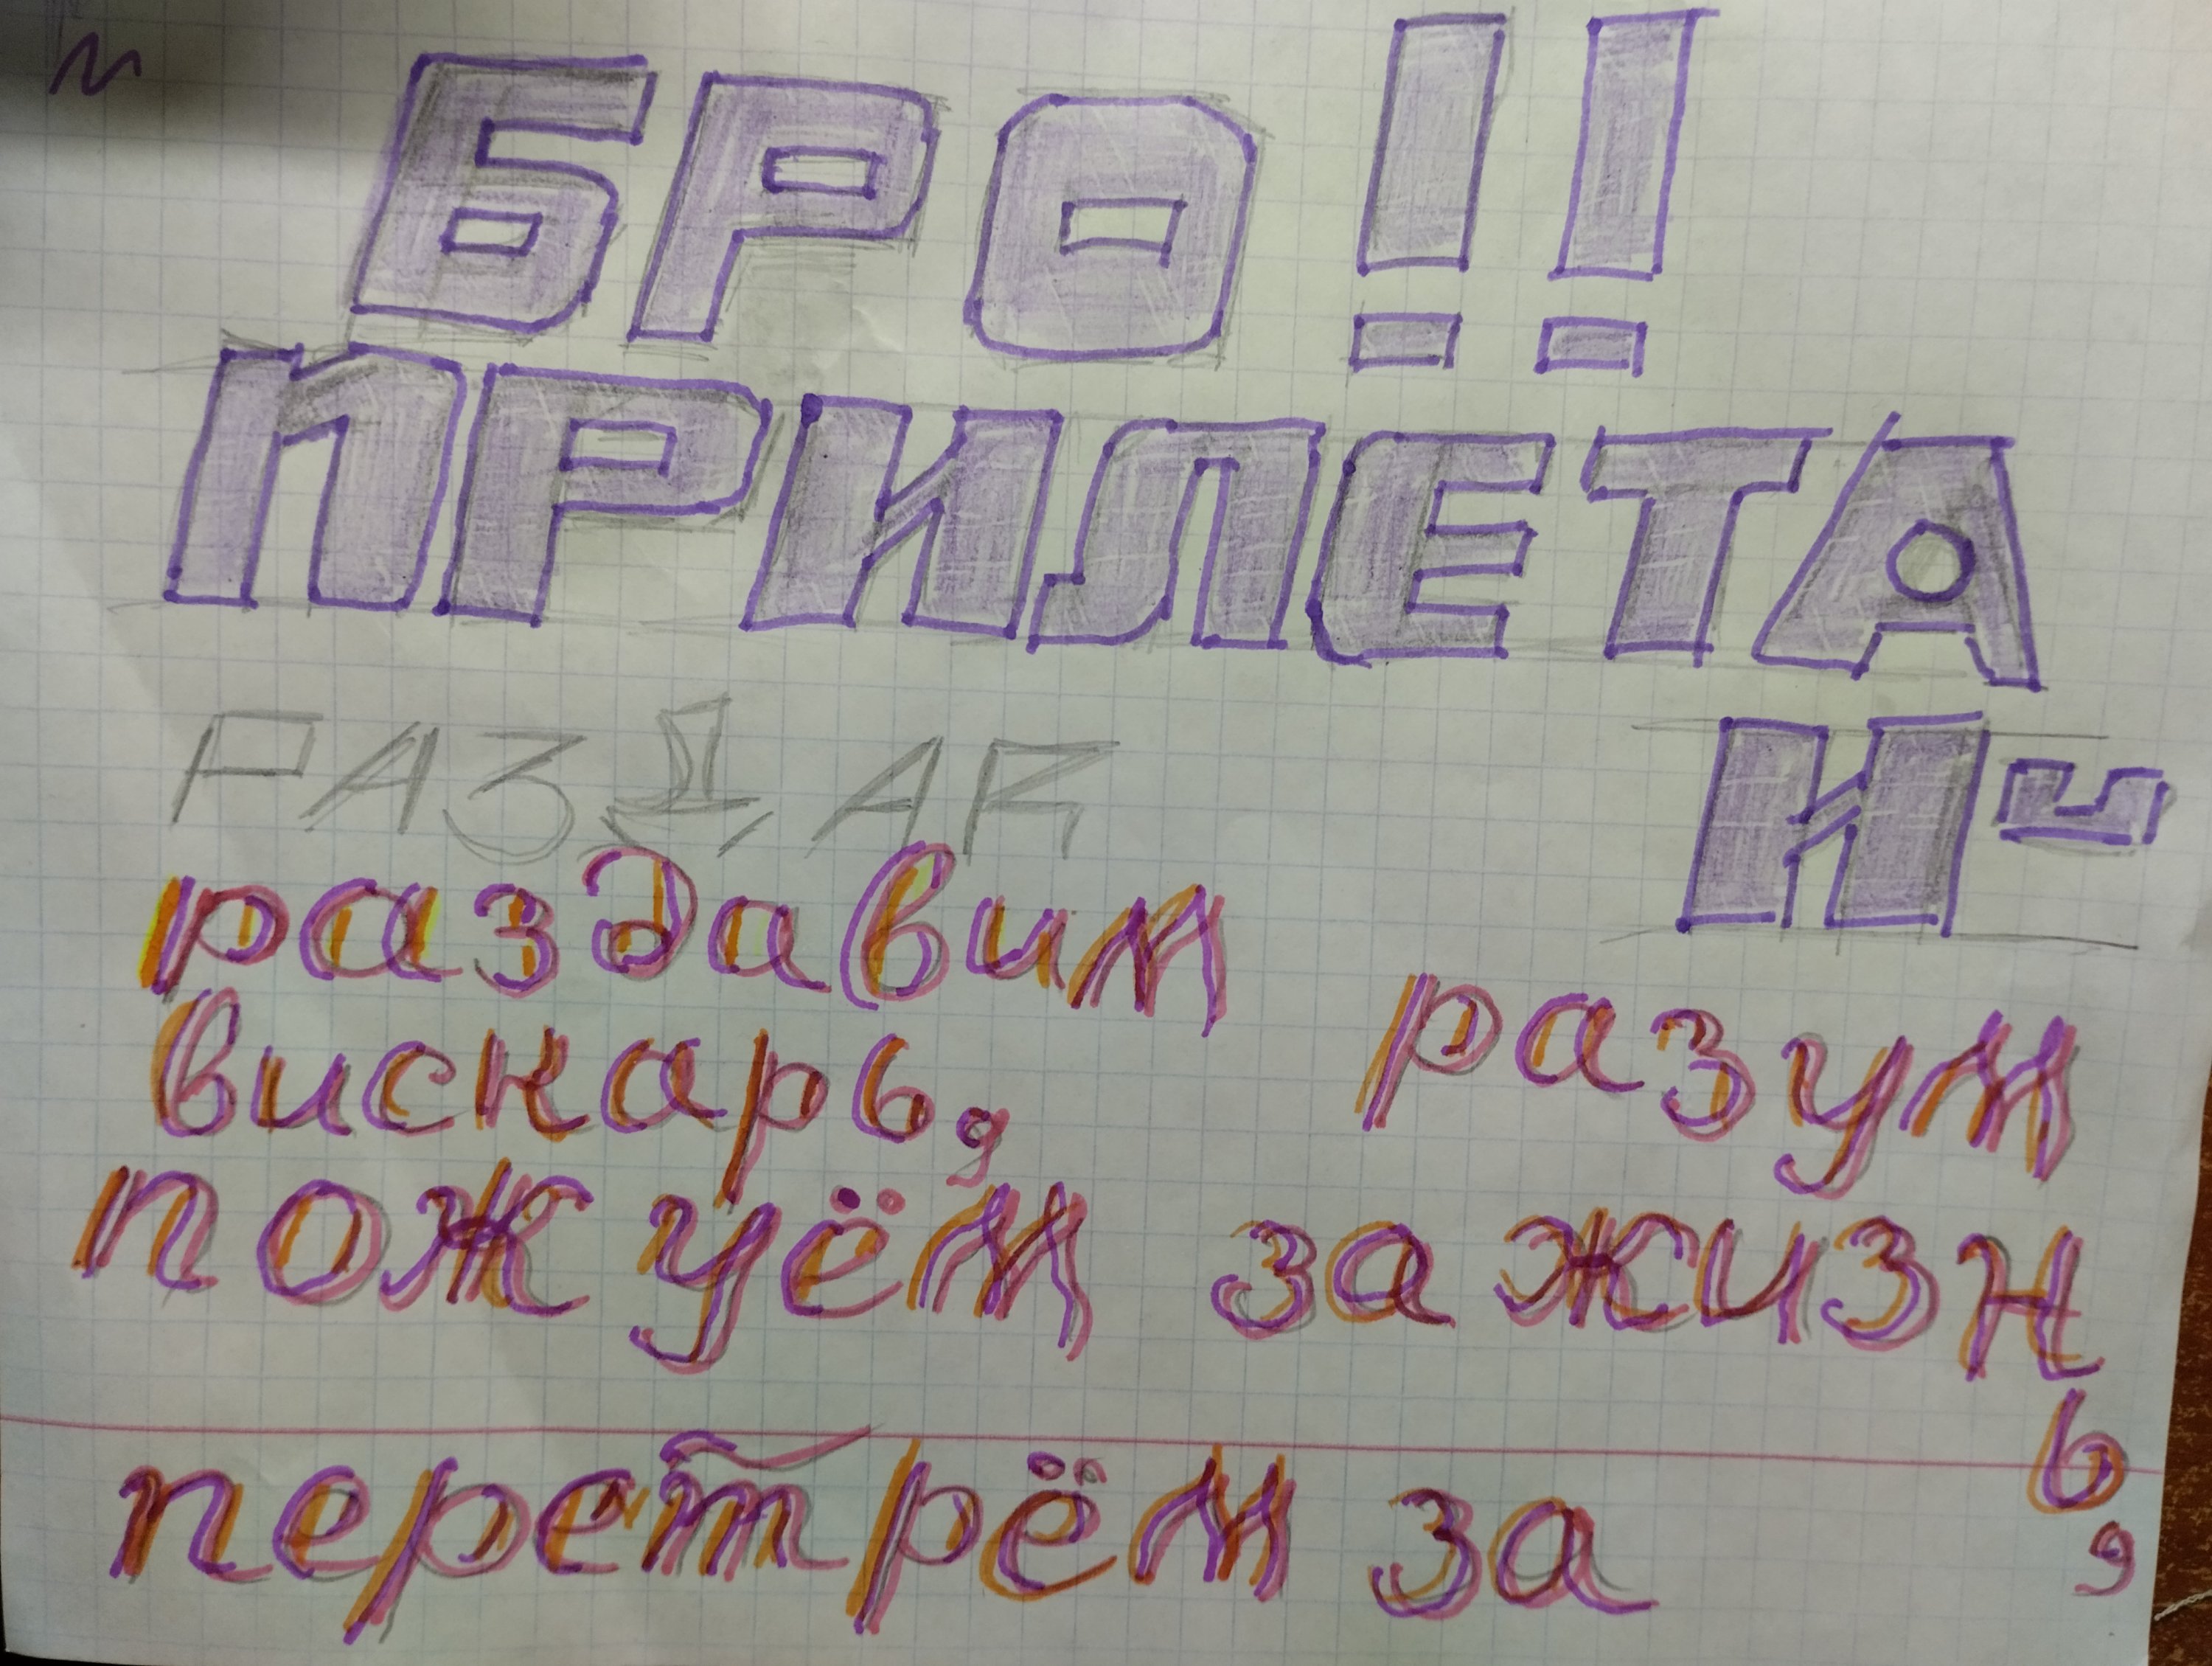 БРО!!
ПРИЛЕТА
Й
РАЗДАВ
раздавим
вискарь, разум
пожуём за жизн
ь,
перетрём за